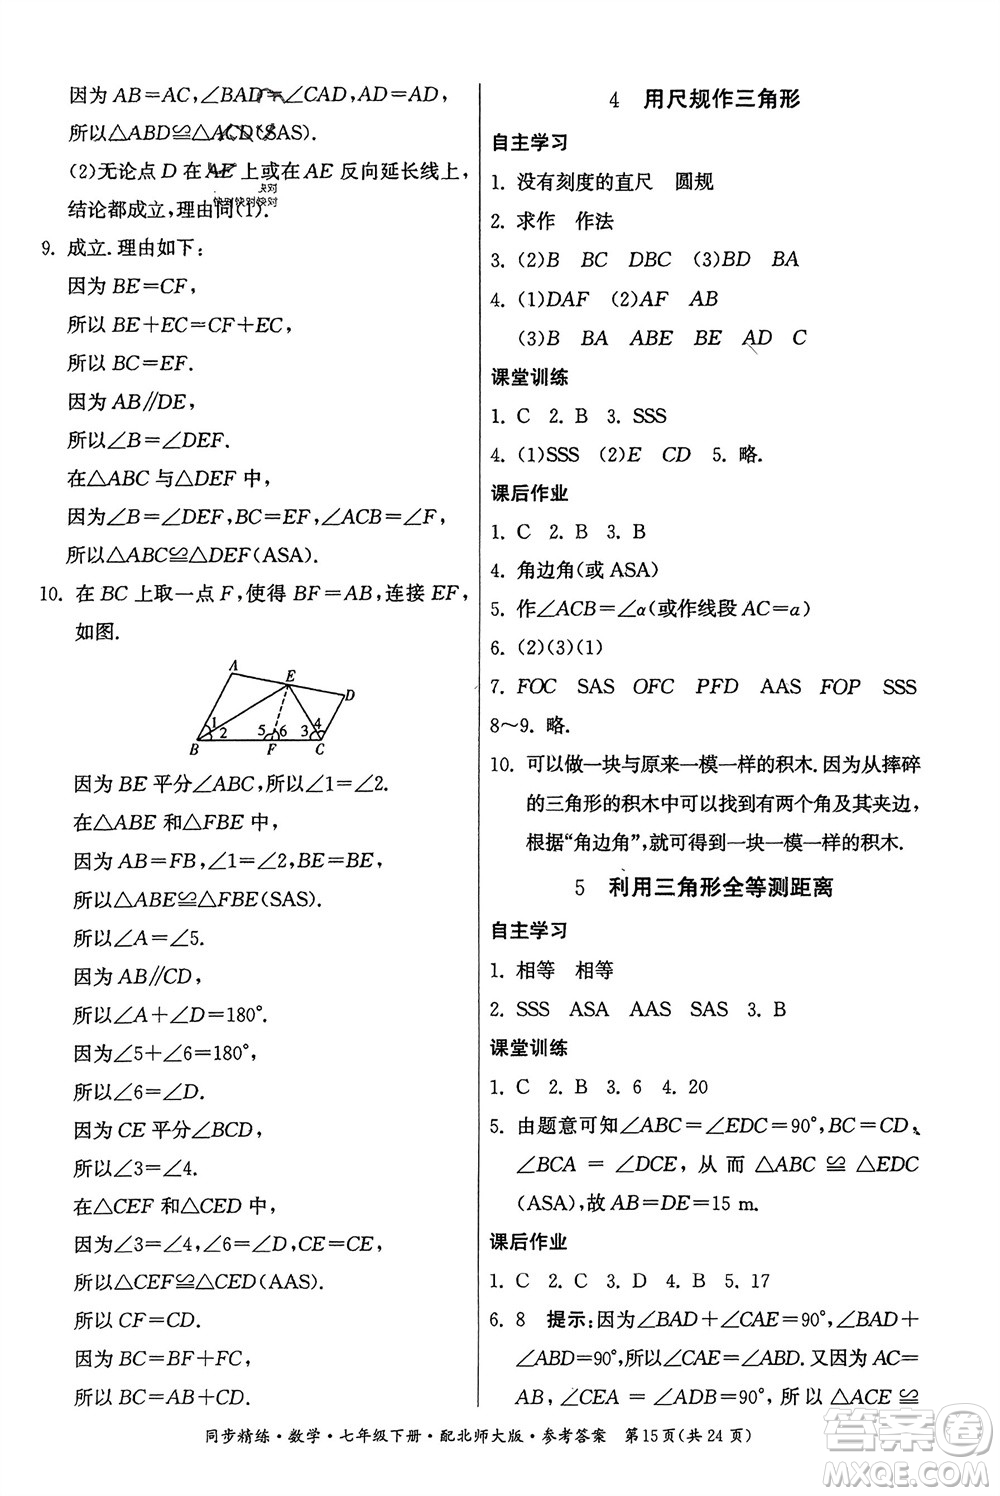 因为 AB=AC,∠BAD=∠CAD,AD=AD,
所以△ABD≌△ACD(SAS).
(2)无论点 D 在 AE 上或在 AE 反向延长线上,
结论都成立,理由同(1).
快对
快对快对快对
9. 成立.理由如下:
因为 BE=CF,
所以 BE+EC=CF+EC,
所以 BC=EF.
因为 AB∥DE,
所以∠B=∠DEF.
在△ABC 与△DEF 中,
因为∠B=∠DEF,BC=EF,∠ACB=∠F,
所以△ABC≌△DEF(ASA).
10. 在 BC 上取一点 F,使得 BF=AB,连接 EF,
如图.
A
E
D
1
2
5
6
3
4
B
F
C
因为 BE 平分∠ABC,所以∠1=∠2.
在△ABE 和△FBE 中,
因为 AB=FB,∠1=∠2,BE=BE,
所以△ABE≌△FBE(SAS).
所以∠A=∠5.
因为 AB∥CD,
所以∠A+∠D=180°.
因为∠5+∠6=180°,
所以∠6=∠D.
因为 CE 平分∠BCD,
所以∠3=∠4.
在△CEF 和△CED 中,
因为∠3=∠4,∠6=∠D,CE=CE,
所以△CEF≌△CED(AAS).
所以 CF=CD.
因为 BC=BF+FC,
所以 BC=AB+CD.
4 用尺规作三角形
自主学习
1. 没有刻度的直尺 圆规
2. 求作 作法
3. (2)B BC DBC (3)BD BA
4. (1)DAF (2)AF AB
(3)B BA ABE BE AD C
课堂训练
1. C 2. B 3. SSS
4. (1)SSS (2)E CD 5. 略.
课后作业
1. C 2. B 3. B
4. 角边角(或 ASA)
5. 作∠ACB=∠α(或作线段 AC=a)
6. (2)(3)(1)
7. FOC SAS OFC PFD AAS FOP SSS
8～9. 略.
10. 可以做一块与原来一模一样的积木.因为从摔碎
的三角形的积木中可以找到有两个角及其夹边,
根据“角边角”,就可得到一块一模一样的积木.
5 利用三角形全等测距离
自主学习
1. 相等 相等
2. SSS ASA AAS SAS 3. B
课堂训练
1. C 2. B 3. 6 4. 20
5. 由题意可知∠ABC=∠EDC=90°,BC=CD,
∠BCA = ∠DCE, 从 而 △ABC ≌ △EDC
(ASA),故 AB=DE=15 m.
课后作业
1. C 2. C 3. D 4. B 5. 17
6. 8 提示:因为∠BAD+∠CAE=90°,∠BAD+
∠ABD=90°,所以∠CAE=∠ABD. 又因为 AC=
AB, ∠CEA = ∠ADB = 90°, 所 以 △ACE ≌
同步精练·数学·七年级下册·配北师大版·参考答案 第15页(共 24 页)
答案圈
MXQE.COM